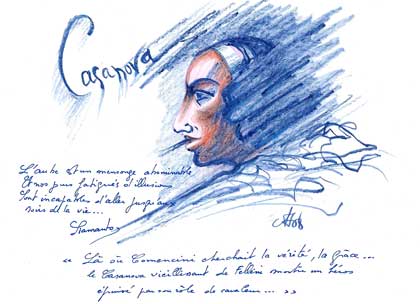 Casanova
L'aube est un mensonge abominable
Et nos yeux fatigués d'illusions
Sont incapables d'aller jusqu'aux
de la vie...
« Là où Comencini cherchait la vérité, la grâce...
le Casanova vieillissant de Fellini montre un héros
épuisé par son rôle de cavaleur... »